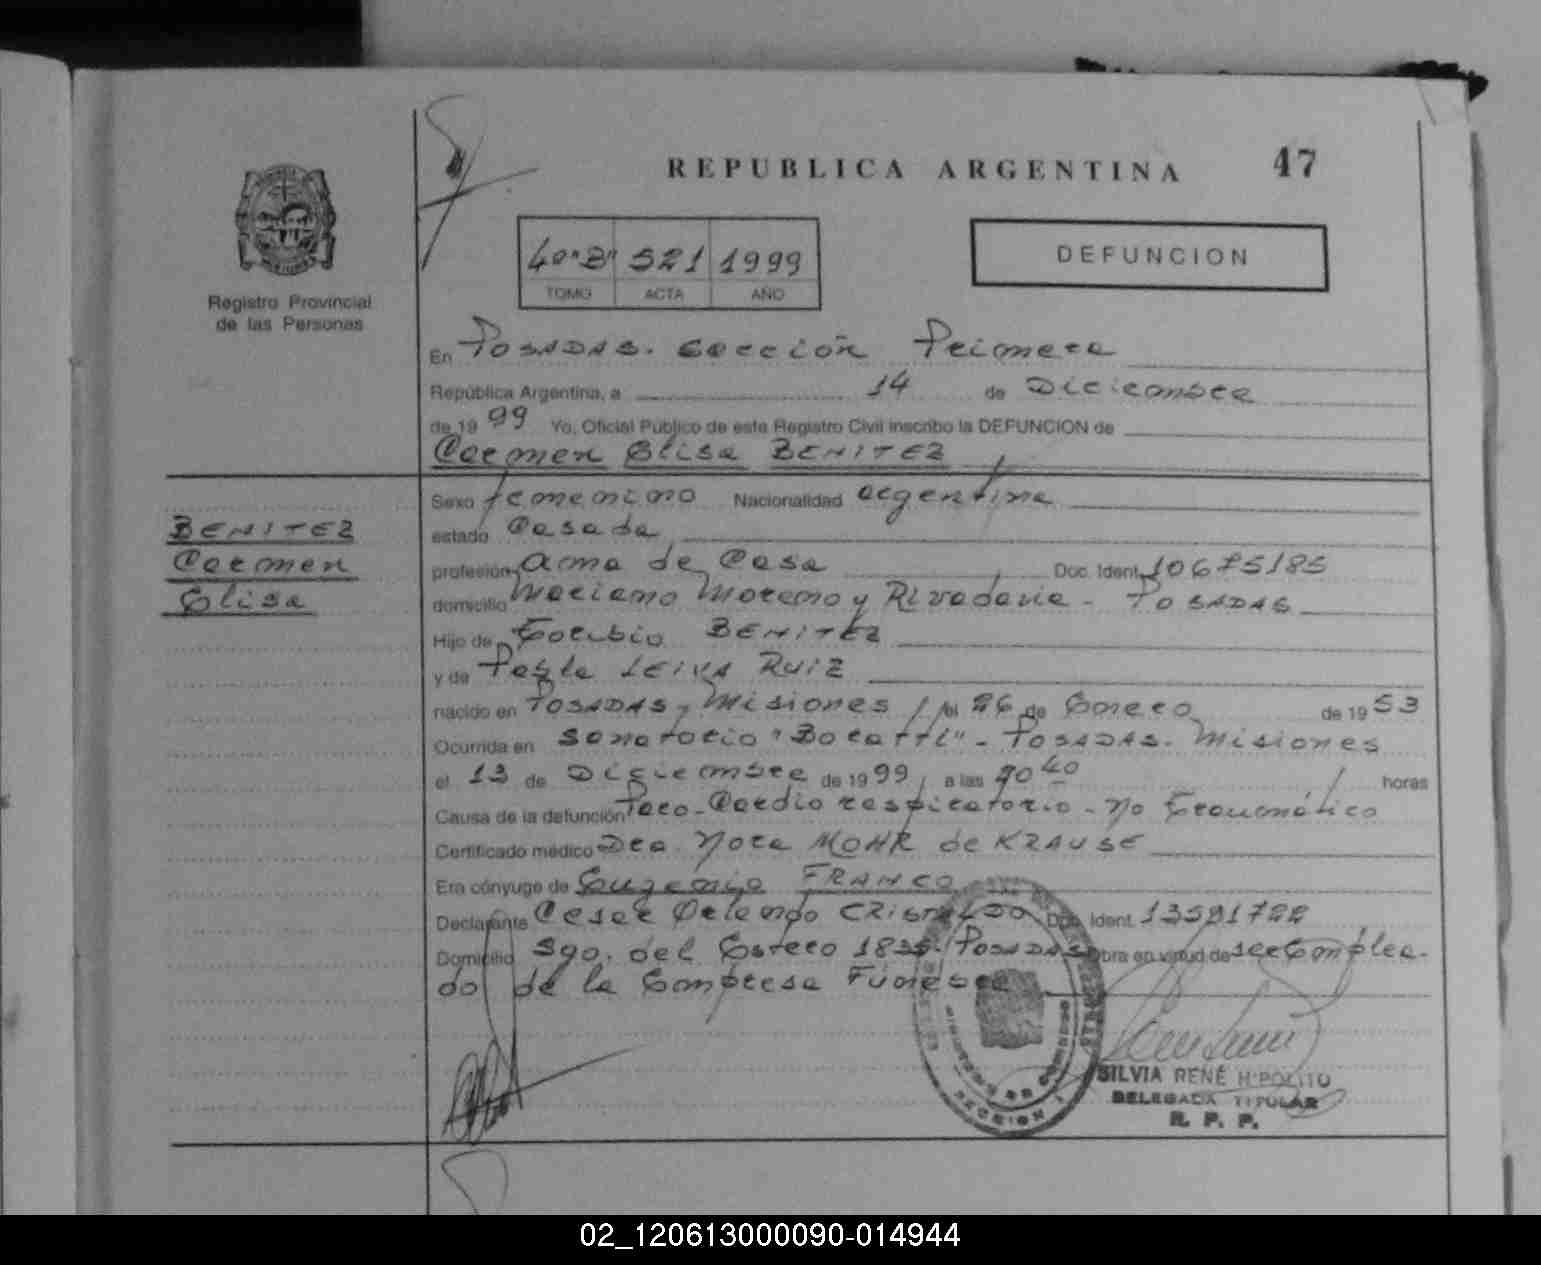 REPUBLICA ARGENTINA 47
Registro Provincial
de las Personas
40"B" 521 1999
TOMO ACTA AÑO
DEFUNCION
En Posadas. Sección Primera
República Argentina, a 14 de Diciembre
de 19 99 Yo, Oficial Público de este Registro Civil inscribo la DEFUNCION de
Carmen Elisa BENITEZ
BENITEZ
Carmen
Elisa
Sexo femenino Nacionalidad argentina
estado Casada
profesión Ama de Casa Doc. Ident. 10675185
domicilio Mariano Moreno y Rivadavia - POSADAS
Hijo de Toribio BENITEZ
y de Pabla LEIVA RUIZ
nacido en POSADAS, Misiones el 26 de Enero de 19 53
Ocurrida en Sanatorio "Boratti" - POSADAS. Misiones
el 13 de Diciembre de 19 99 a las horas
Causa de la defunción Paro-Cardio respiratorio - no traumático
Certificado médico Dra Nora MOHR de KRAUSE
Era cónyuge de Eugenio FRANCO
Declarante Cesar Orlando CRISTALDO Doc. Ident. 13591722
Domicilio Sgo. del Estero 1835 - POSADAS Obra en virtud de ser Emplea-
do de la Empresa Funebre
SILVIA RENÉ HIPOLITO
DELEGADA TITULAR
R. P. P.
02_120613000090-014944